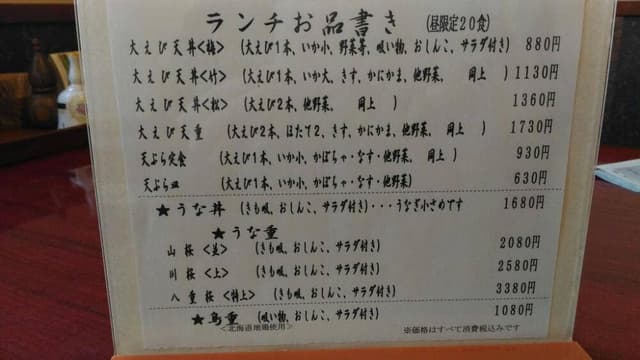 ランチお品書き (昼限定20食)
大えび天丼<梅> (大えび1本、いか小、野菜等、吸い物、おしんこ、サラダ付き) 880円
大えび天丼<竹> (大えび1本、いか大、きす、かにかま、他野菜、 同上 ) 1130円
大えび天丼<松> (大えび2本、他野菜、 同上 ) 1360円
大えび天重 (大えび2本、ほたて2、きす、かにかま、他野菜、 同上 ) 1730円
天ぷら定食 (大えび1本、いか小、かぼちゃ・なす・他野菜、 同上 ) 930円
天ぷら皿 (大えび1本、いか小、かぼちゃ・なす・他野菜) 630円
★うな丼 (きも吸、おしんこ、サラダ付き)・・・うなぎ小さめです 1680円
★うな重
山桜<並> (きも吸、おしんこ、サラダ付き) 2080円
川桜<上> (きも吸、おしんこ、サラダ付き) 2580円
八重桜<特上> (きも吸、おしんこ、サラダ付き) 3380円
★鳥重 (吸い物、おしんこ、サラダ付き) 1080円
<北海道地鶏使用> ※価格はすべて消費税込みです